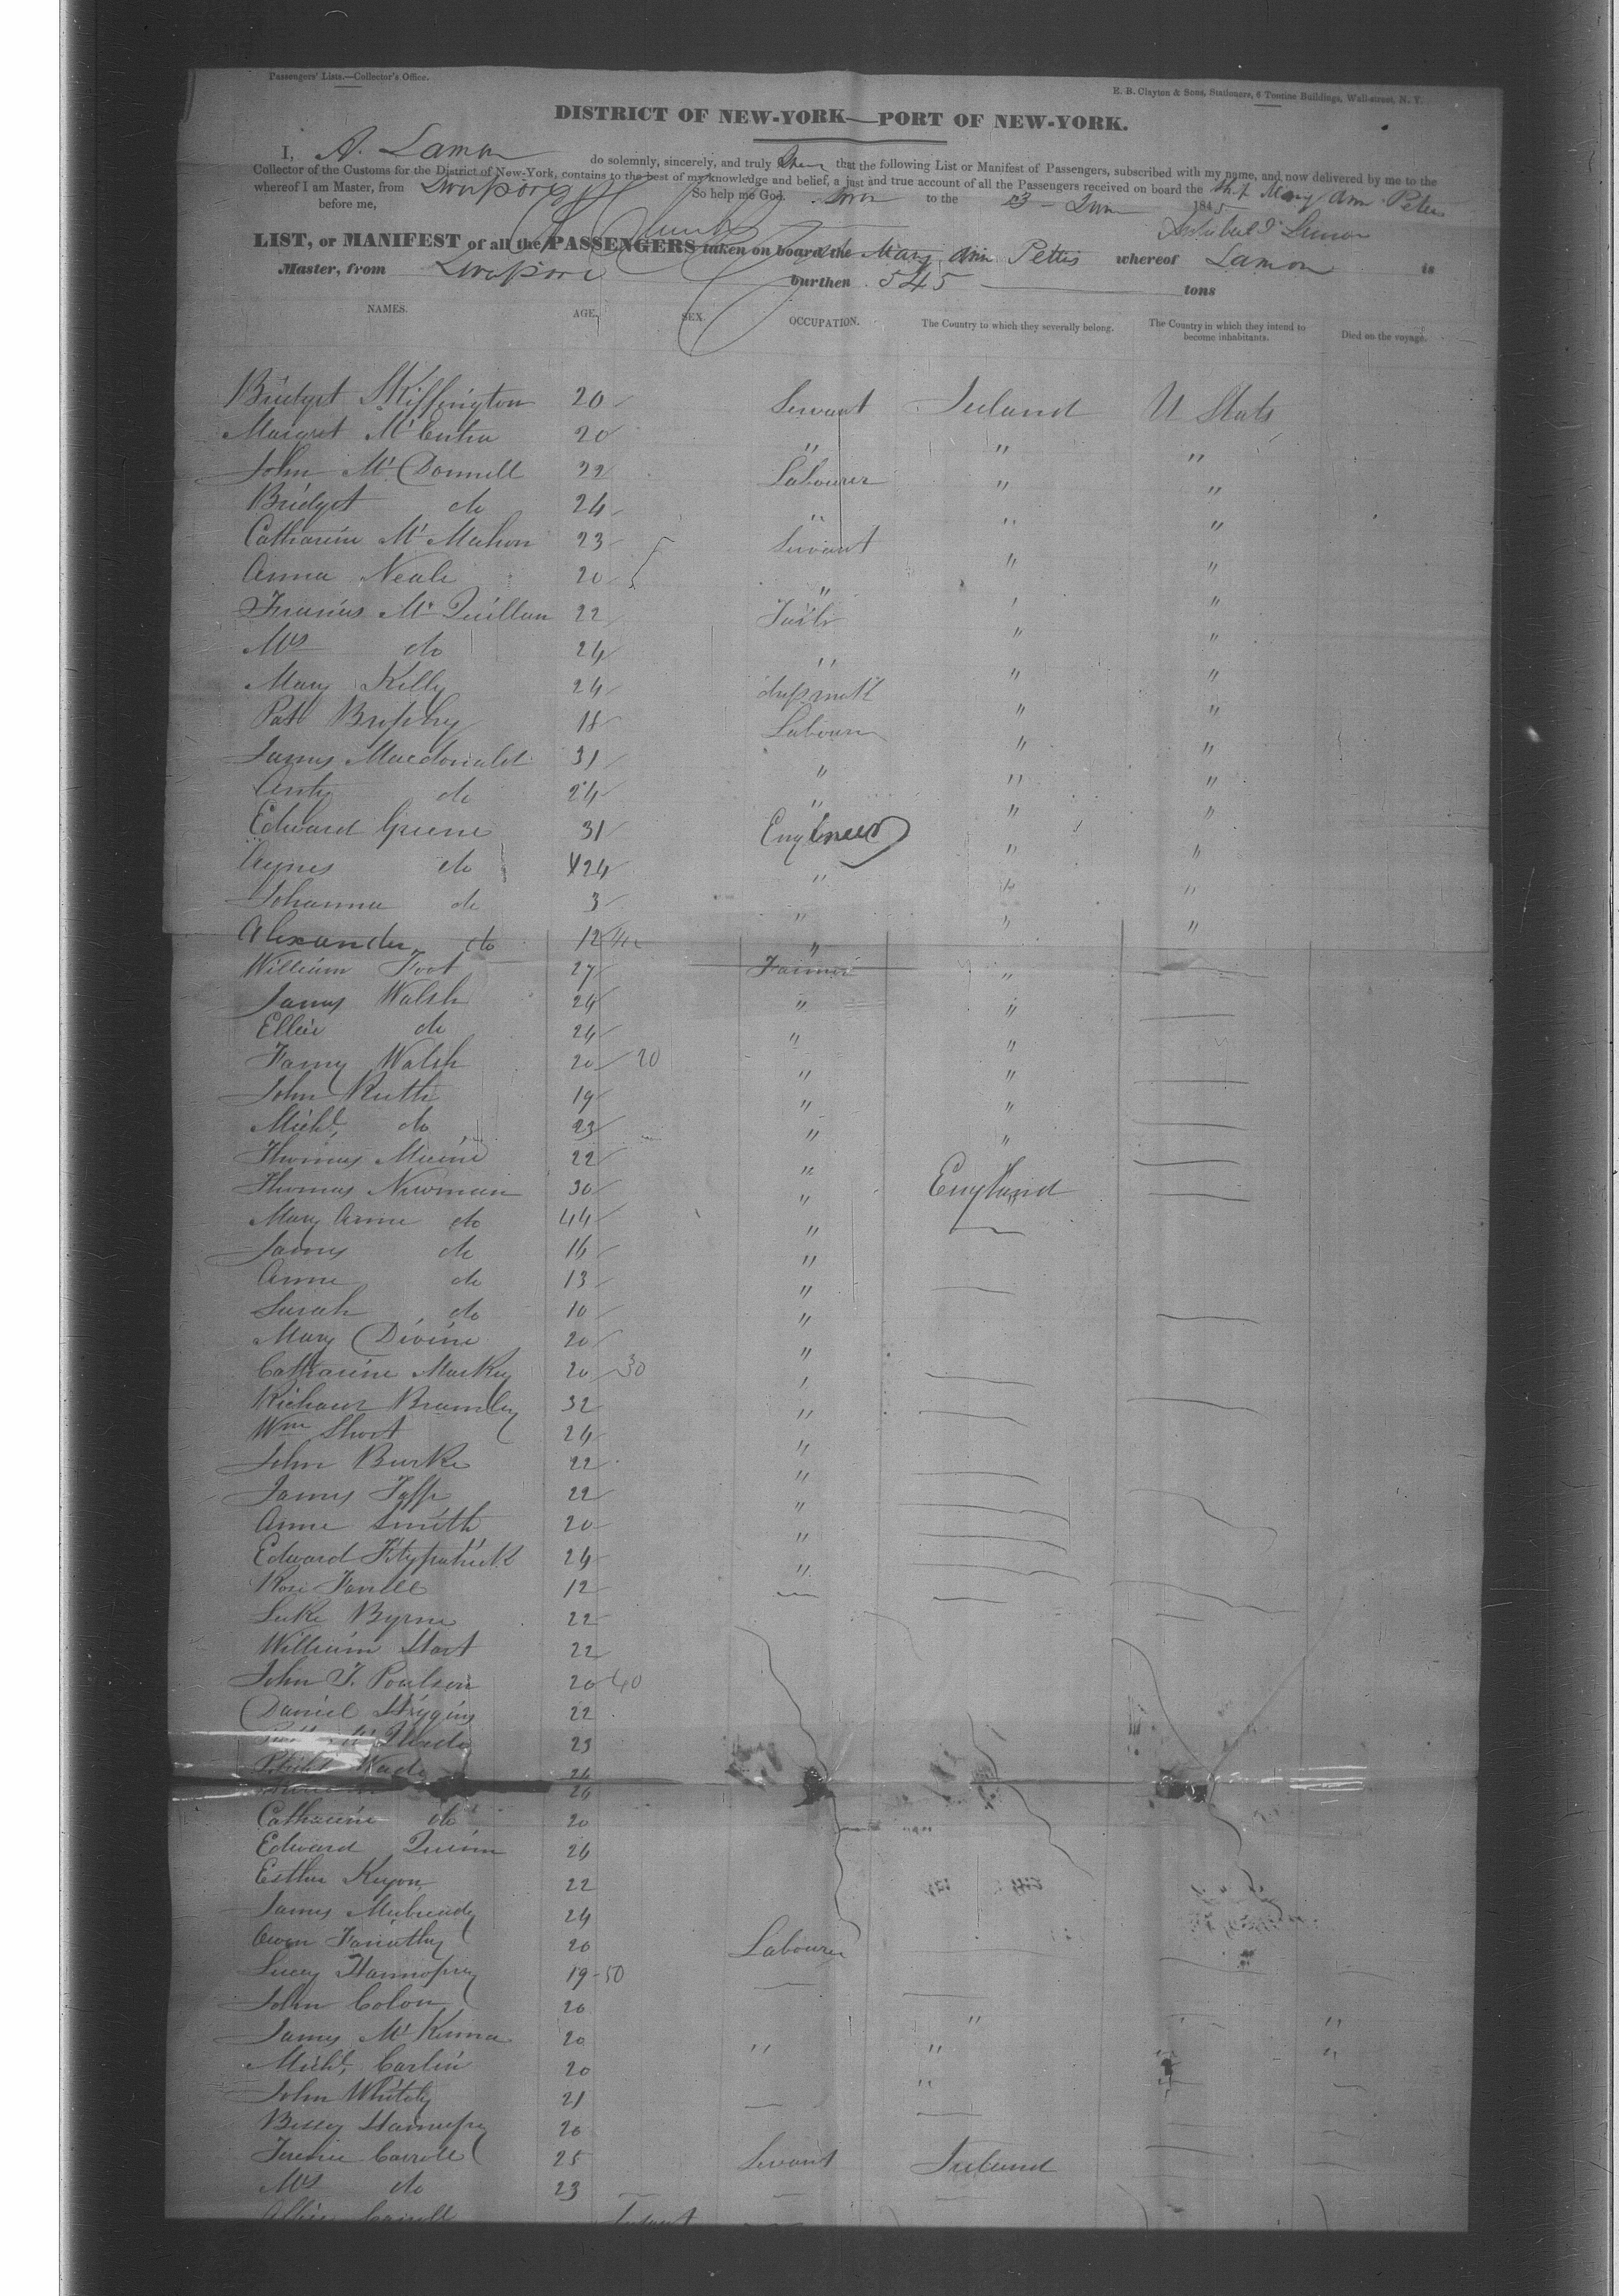 Passengers' Lists.—Collector's Office.
E. B. Clayton & Sons, Stationers, 6 Tontine Buildings, Wall-street, N. Y.
DISTRICT OF NEW-YORK—PORT OF NEW-YORK.
I, A. Lamon do solemnly, sincerely, and truly that the following List or Manifest of Passengers, subscribed with my name, and now delivered by me to the
Collector of the Customs for the District of New-York, contains to the best of my knowledge and belief, a just and true account of all the Passengers received on board the Mary Ann Peters
whereof I am Master, from Liverpool So help me God.
before me, to the 23 June 1845
LIST, or MANIFEST of all the PASSENGERS taken on board the Mary Ann Petters whereof Lamon is
Master, from Liverpool burthen 545 tons
NAMES. AGE. SEX. OCCUPATION. The Country to which they severally belong. The Country in which they intend to become inhabitants. Died on the voyage.
Bridget Skiffington 20 Servant Ireland U States
Margret 20 " " "
John Mc Donnell 22 Labourer " "
Bridget do 24 " " "
Catharine Mc Mahon 23 Servant " "
Anna Neale 20 " " "
Francis Mc Quillan 22 " "
Mrs do 24 " " "
Mary Kelly 24 " "
Patk Brophy 18 Labourer " "
James Macdonald 31 " " "
do 24 " " "
Edward Greene 31 Engineer " "
Agnes do 24 " " "
Johanna do 3 " " "
Alexander do 12 " "
William Foot 27 Farmer "
James Walsh 24 " "
Ellen do 24 " "
Fanny Walsh 20 20 " "
John Ruth 19 " "
Michl. do 23 " "
Thomas 22 "
Thomas Newman 30 " England
Mary Anne do 44 "
James do 16 "
Anne do 13 "
Sarah do 10 "
Mary Divine 20 "
Catharine Markey 20 30 "
Richard Bramley 32 "
Wm Short 24 "
John Burke 22 "
James Taffe 22 "
Anne Smith 20 "
Edward Fitzpatrick 24 "
Rose Farrell 12
Luke Byrne 22
William Hart 22
John T. Poulson 20 40
Daniel Higgins 22
23
Wade 24
26
Catharine do 20
Edward Quinn 24
Esther Keyon 22
James 24
Owen 20 Labourer
Lucy 19 50
John Colon 20
James Mc Kenna 20
Michl. Carlin 20
John Whitely 21
Bessy 20
Terence Carroll 25 Servant Ireland
Mrs do 23
Carroll Infant